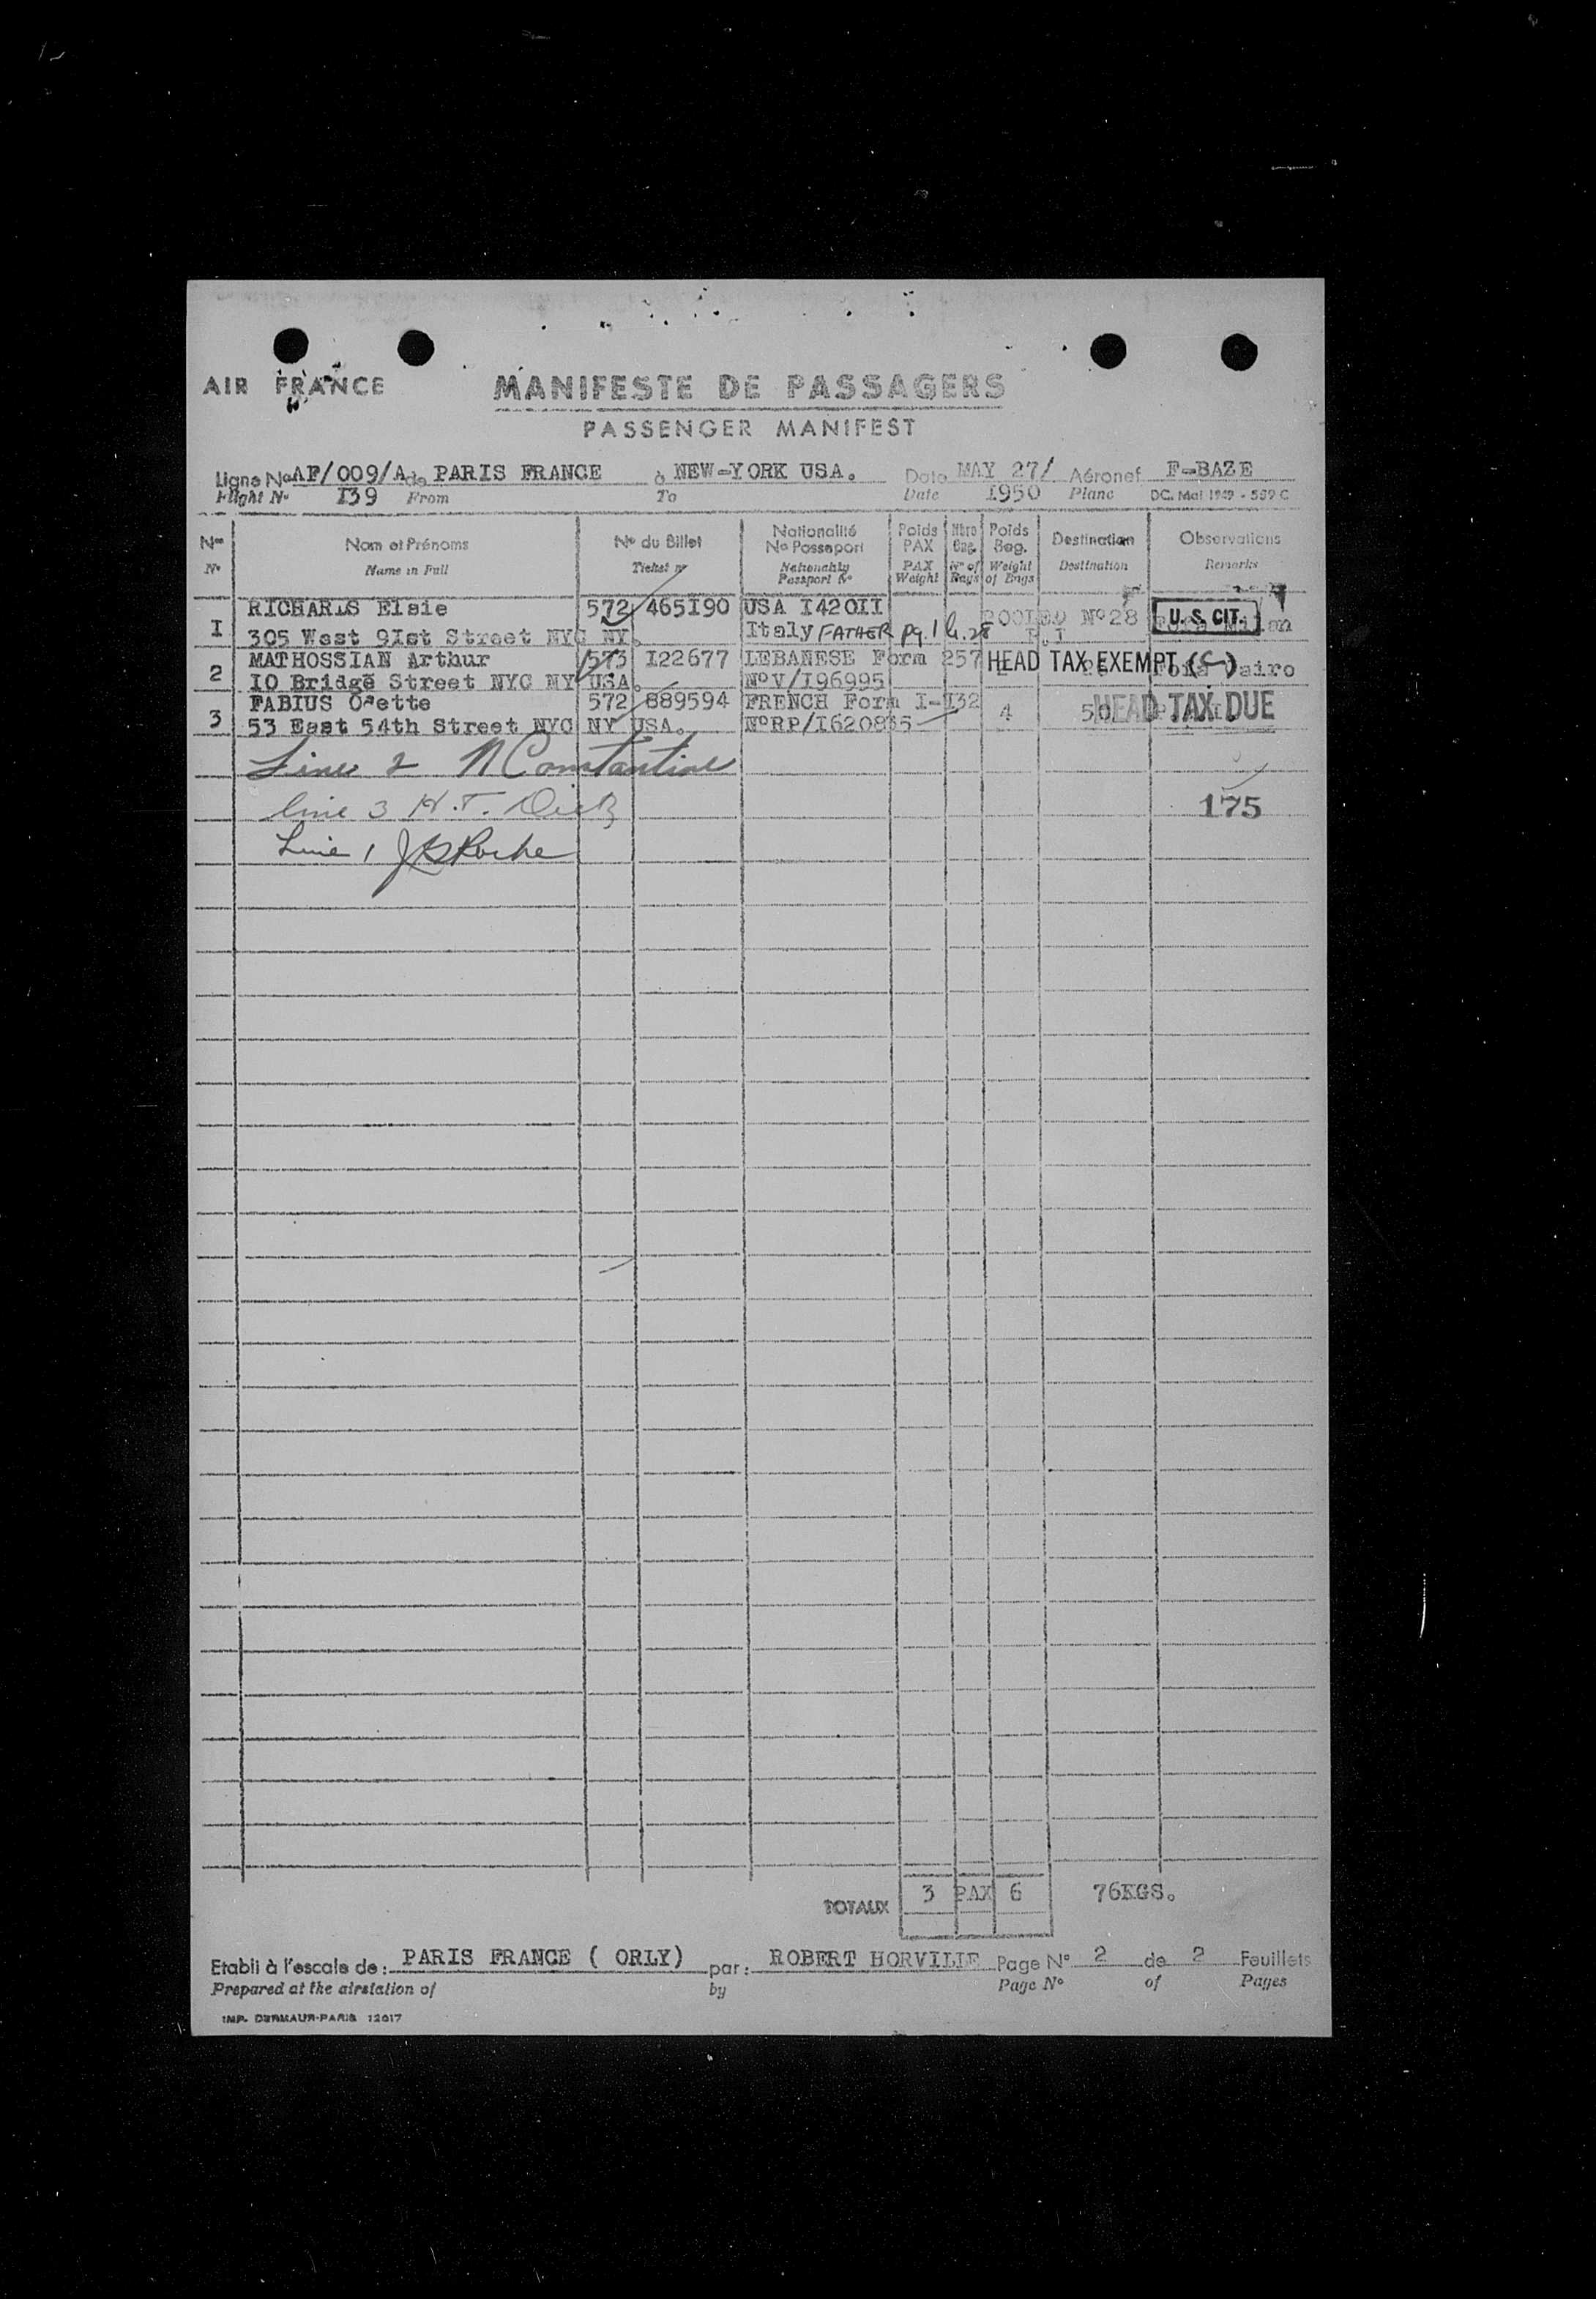 AIR FRANCE
MANIFESTE DE PASSAGERS
PASSENGER MANIFEST
Ligne No AF/009/A de PARIS FRANCE à NEW-YORK USA. Date MAY 27/ Aéronef F-BAZE
Flight No 139 From To Date 1950 Plane DC. Mai 1949 - 559 C
Nos Nom et Prénoms No du Billet Nationalité No Passeport Poids PAX Nbre Bag. Poids Bag. Destination Observations
No Name in Full Ticket no Nationality Passport No PAX Weight No of Bags Weight of Bags Destination Remarks
I RICHARDS Elsie 572 465I90 USA I420II POOLED No 28 U.S. CIT.
305 West 9Ist Street NYC NY. Italy FATHER pg. 1 P.I
2 MATHOSSIAN Arthur 573 I22677 LEBANESE Form 257 HEAD TAX EXEMPT (C) Cairo
IO Bridge Street NYC NY USA. No V/I96995
3 FABIUS Odette 572 889594 FRENCH Form I-I32 4 50 HEAD TAX DUE
53 East 54th Street NYC NY USA. No RP/I620835
Line 2 N Constantine
line 3 H.T. Dietz
175
Line 1 JG Roche
TOTAUX 3 PAX 6 76KGS.
Etabli à l'escale de : PARIS FRANCE ( ORLY) par : ROBERT HORVILLE Page No 2 de 2 Feuillets
Prepared at the airstation of by Page No of Pages
IMP. DERMAUR-PARIS 12017